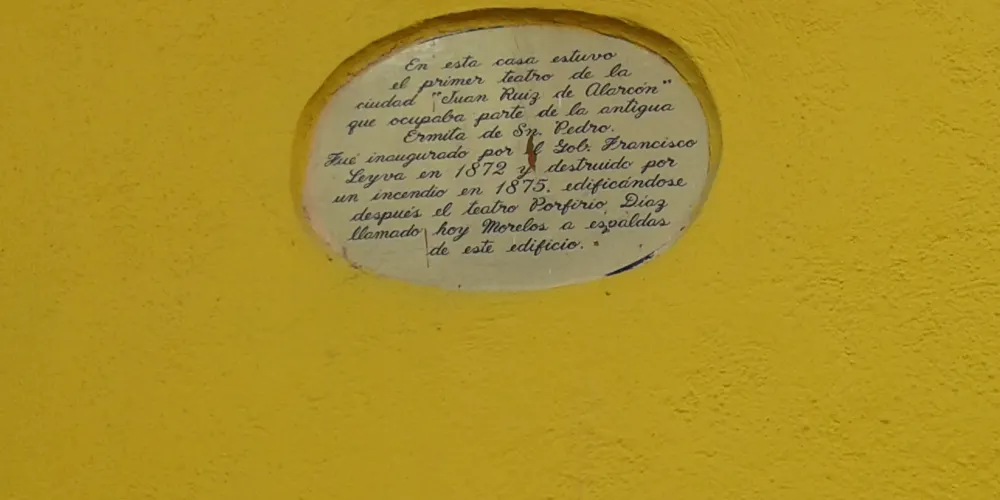 En esta casa estuvo
el primer teatro de la
ciudad "Juan Ruiz de Alarcón"
que ocupaba parte de la antigua
Ermita de Sn. Pedro.
Fué inaugurado por el Gob. Francisco
Leyva en 1872 y destruido por
un incendio en 1875, edificándose
después el teatro Porfirio Diaz
llamado hoy Morelos a espaldas
de este edificio.